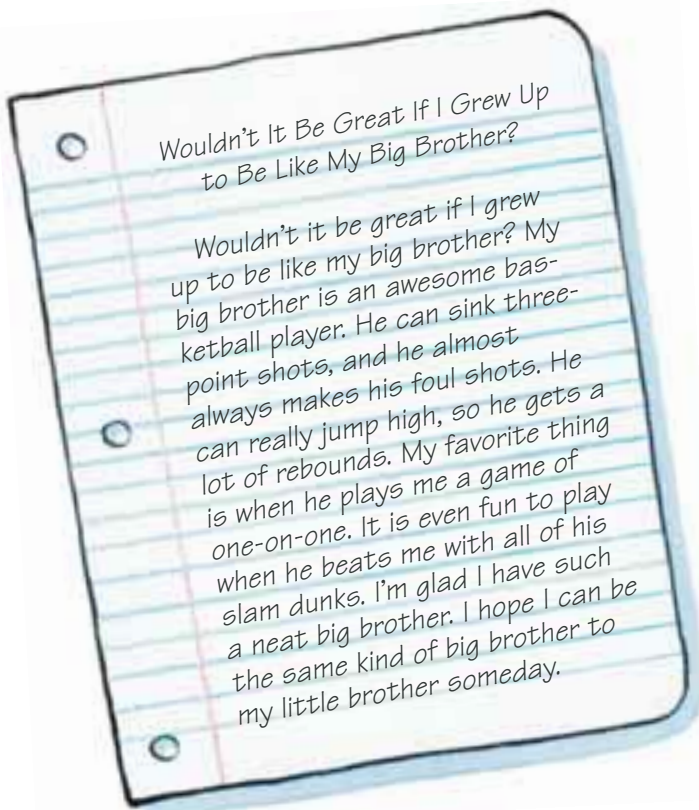 Wouldn't It Be Great If I Grew Up
to Be Like My Big Brother?
Wouldn't it be great if I grew
up to be like my big brother? My
big brother is an awesome bas-
ketball player. He can sink three-
point shots, and he almost
always makes his foul shots. He
can really jump high, so he gets a
lot of rebounds. My favorite thing
is when he plays me a game of
one-on-one. It is even fun to play
when he beats me with all of his
slam dunks. I'm glad I have such
a neat big brother. I hope I can be
the same kind of big brother to
my little brother someday.